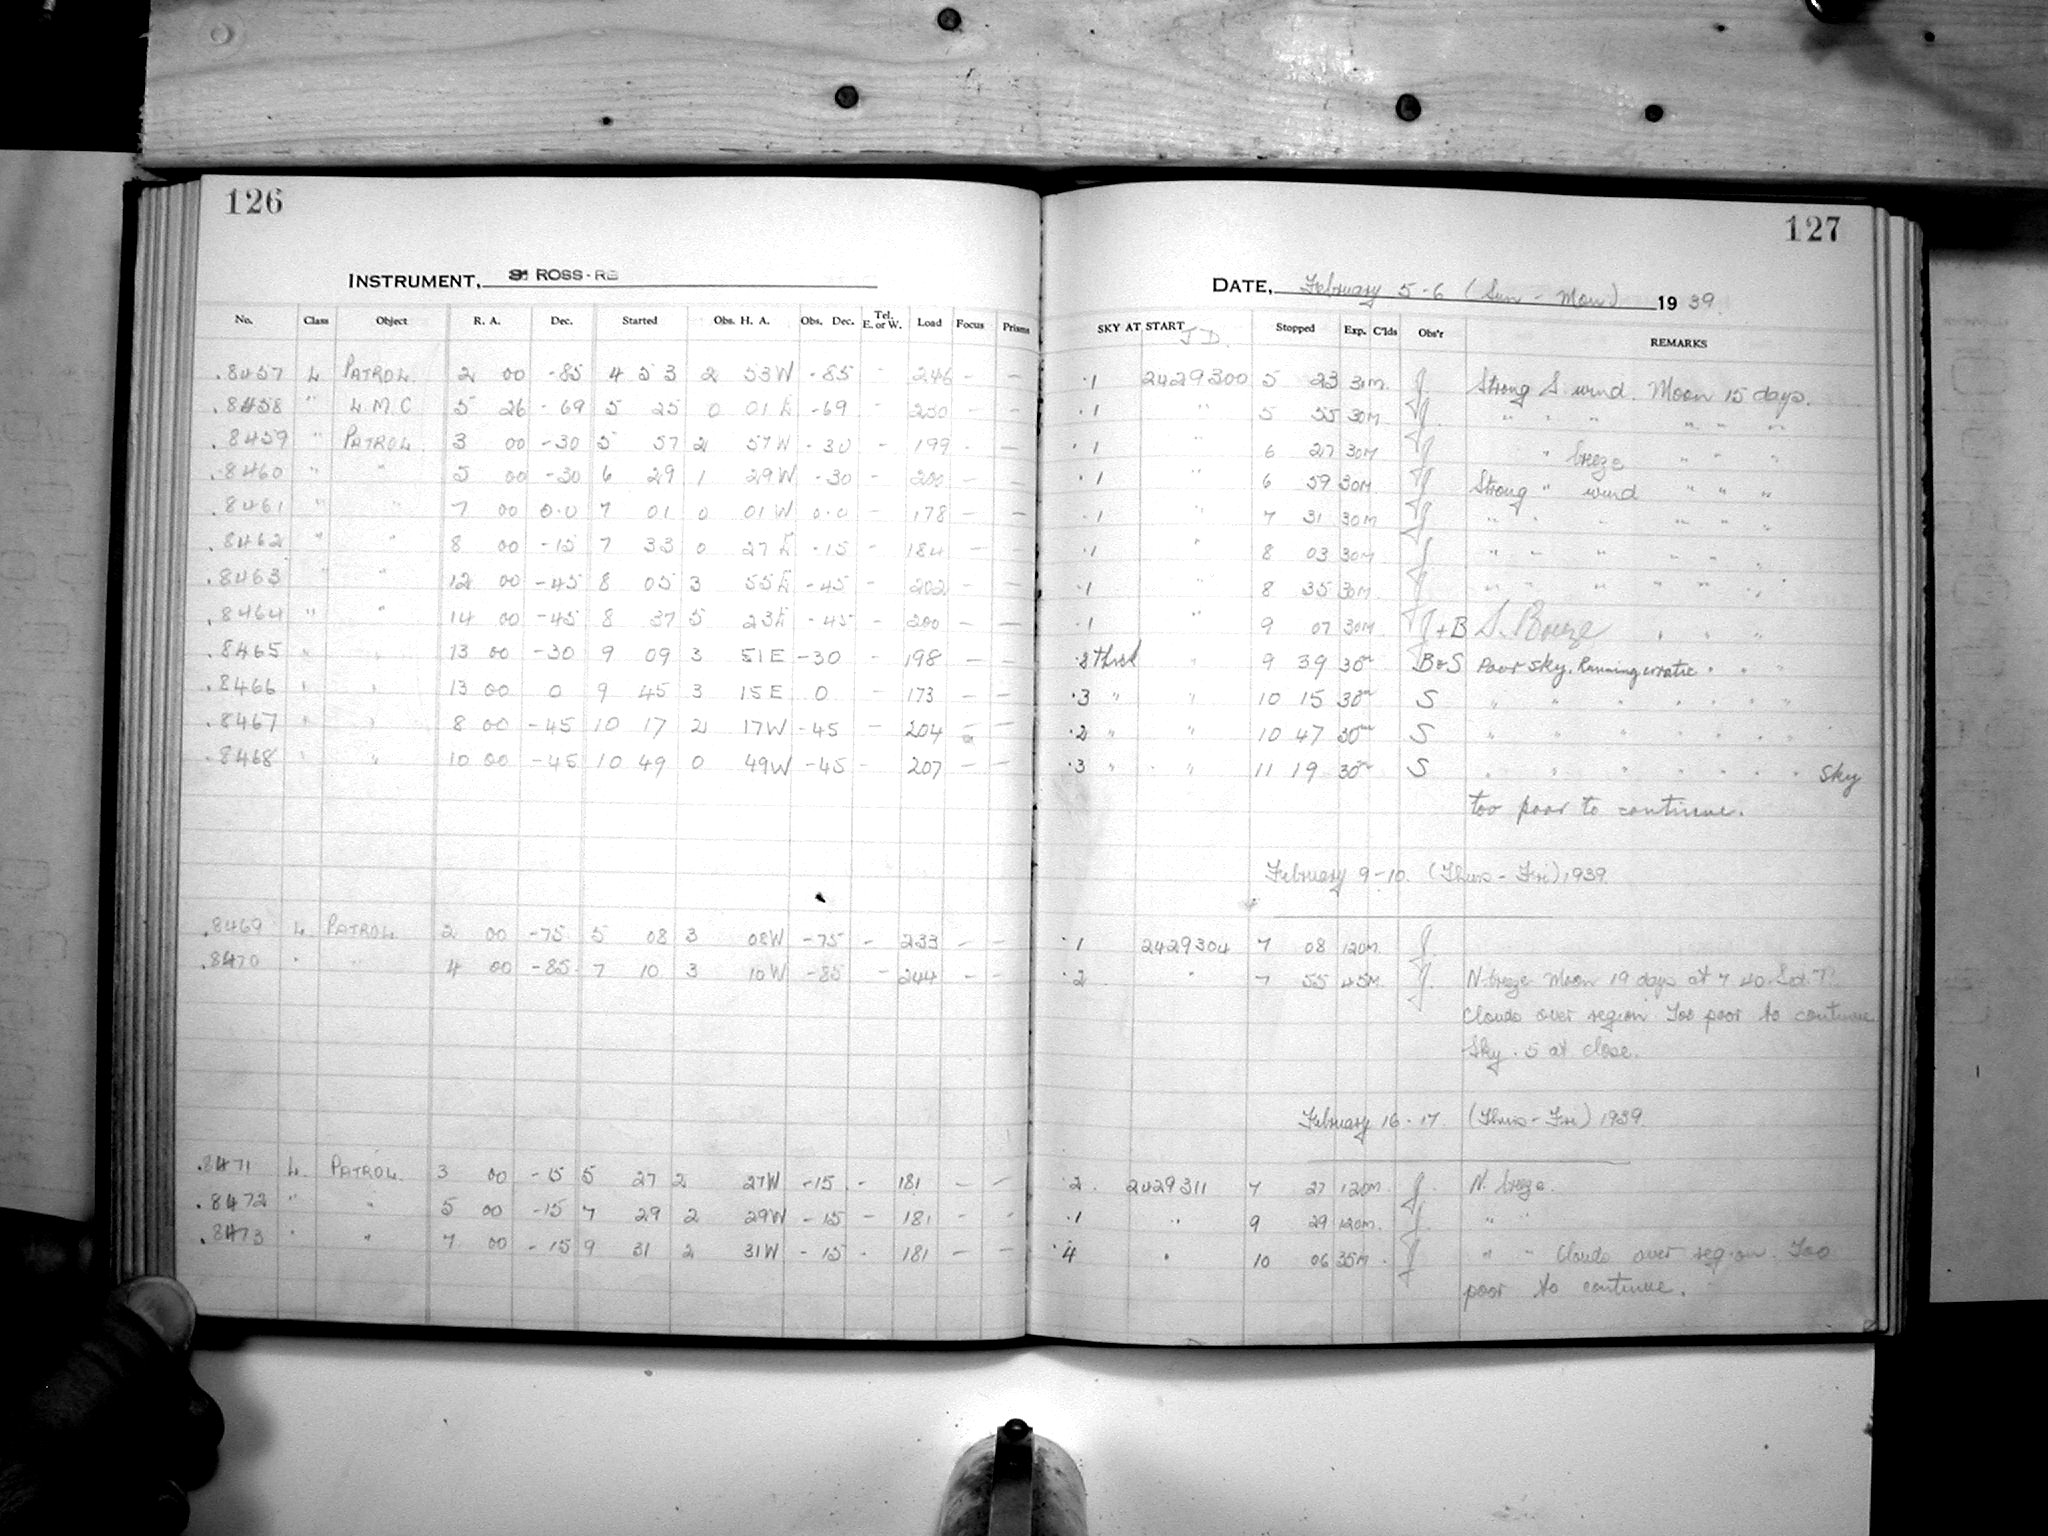 126
127
INSTRUMENT, ROSS-
DATE, February 5-6 (Sun - Mon) 1939.
No. Class Object R. A. Dec. Started Obs. H. A. Obs. Dec. Tel. E. or W. Load Focus Prisms SKY AT START J D. Stopped Exp. C'lds Obs'r REMARKS
.8457 L PATROL 2 00 -85 4 53 2 53W -85 - 246 - - .1 2429300 5 23 30m. J. Strong S. wind. Moon 15 days.
.8458 " L.M.C 5 26 -69 5 25 0 01E -69 - 230 - - .1 " 5 55 30m. J " " " " " "
.8459 " PATROL 3 00 -30 5 57 2 57W -30 - 199 - - .1 " 6 27 30m J " breeze " " "
.8460 " " 5 00 -30 6 29 1 29W -30 - 200 - - .1 " 6 59 30m J Strong " wind " " "
.8461 " " 7 00 0.0 7 01 0 01W 0.0 - 178 - - .1 " 7 31 30m J " " " " " "
.8462 " " 8 00 -15 7 33 0 27E -15 - 184 - - .1 " 8 03 30m J " " " " " "
.8463 " " 12 00 -45 8 05 3 55E -45 - 202 - - .1 " 8 35 30m. J " " " " " "
.8464 " " 14 00 -45 8 37 5 23E -45 - 200 - - .1 " 9 07 30m J+B S. Breeze " " "
.8465 " " 13 00 -30 9 09 3 51E -30 - 198 - - " 9 39 30m B&S Poor sky. Running erratic " " "
.8466 " " 13 00 0 9 45 3 15E 0 - 173 - - .3 " " 10 15 30m S " " " " " " "
.8467 " " 8 00 -45 10 17 2 17W -45 - 204 - - .2 " " 10 47 30m S " " " " " " "
.8468 " " 10 00 -45 10 49 0 49W -45 - 207 - - .3 " " 11 19 30m S " " " " " " " Sky
too poor to continue.
February 9-10. (Thurs - Fri) 1939.
.8469 L PATROL 2 00 -75 5 08 3 08W -75 - 233 - - .1 2429304 7 08 120m. J
.8470 " " 4 00 -85 7 10 3 10W -85 - 244 - - .2 " 7 55 45m. J. N. breeze Moon 19 days at 7 40
Clouds over region. Too poor to continue
Sky .5 at close.
February 16-17. (Thurs - Fri) 1939.
.8471 L. PATROL. 3 00 -15 5 27 2 27W -15 - 181 - - .2. 2429311 7 27 120m. J. N. breeze.
.8472 " " 5 00 -15 7 29 2 29W -15 - 181 - - .1 " 9 29 120m. J. " "
.8473 " " 7 00 -15 9 31 2 31W -15 - 181 - - .4 " 10 06 35m. J " " Clouds over region. Too
poor to continue.